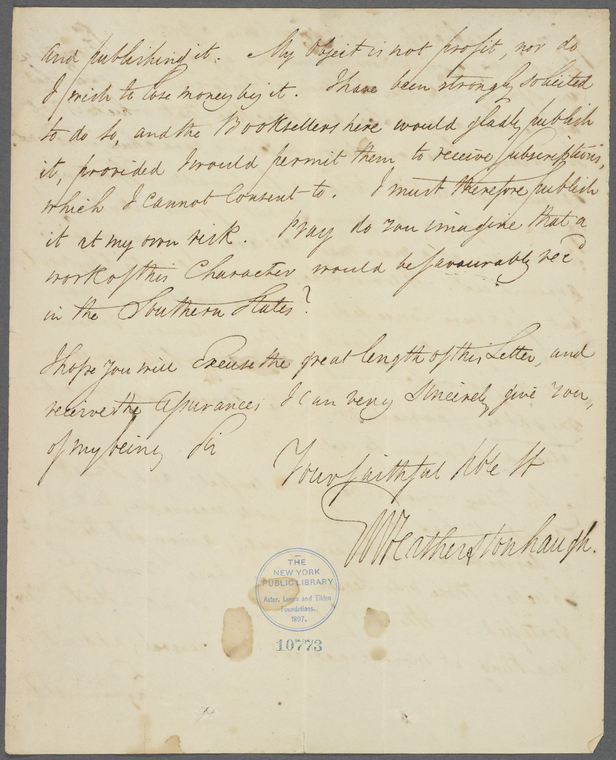 and publishing it. My Object is not profit, nor do
I wish to lose money by it. I have been strongly solicited
to do so, and the Booksellers here would gladly publish
it, provided I would permit them to receive subscriptions,
which I cannot Consent to. I must therefore publish
it at my own risk. Pray do you imagine that a
work of this Character would be favourably recd
in the Southern States?
I hope you will Excuse the great length of this Letter, and
receive the assurances I can very sincerely give you,
of my being Sir
Your faithful
Featherstonhaugh.
THE
NEW YORK
PUBLIC LIBRARY
Astor, Lenox and Tilden
Foundations.
1897.
10773